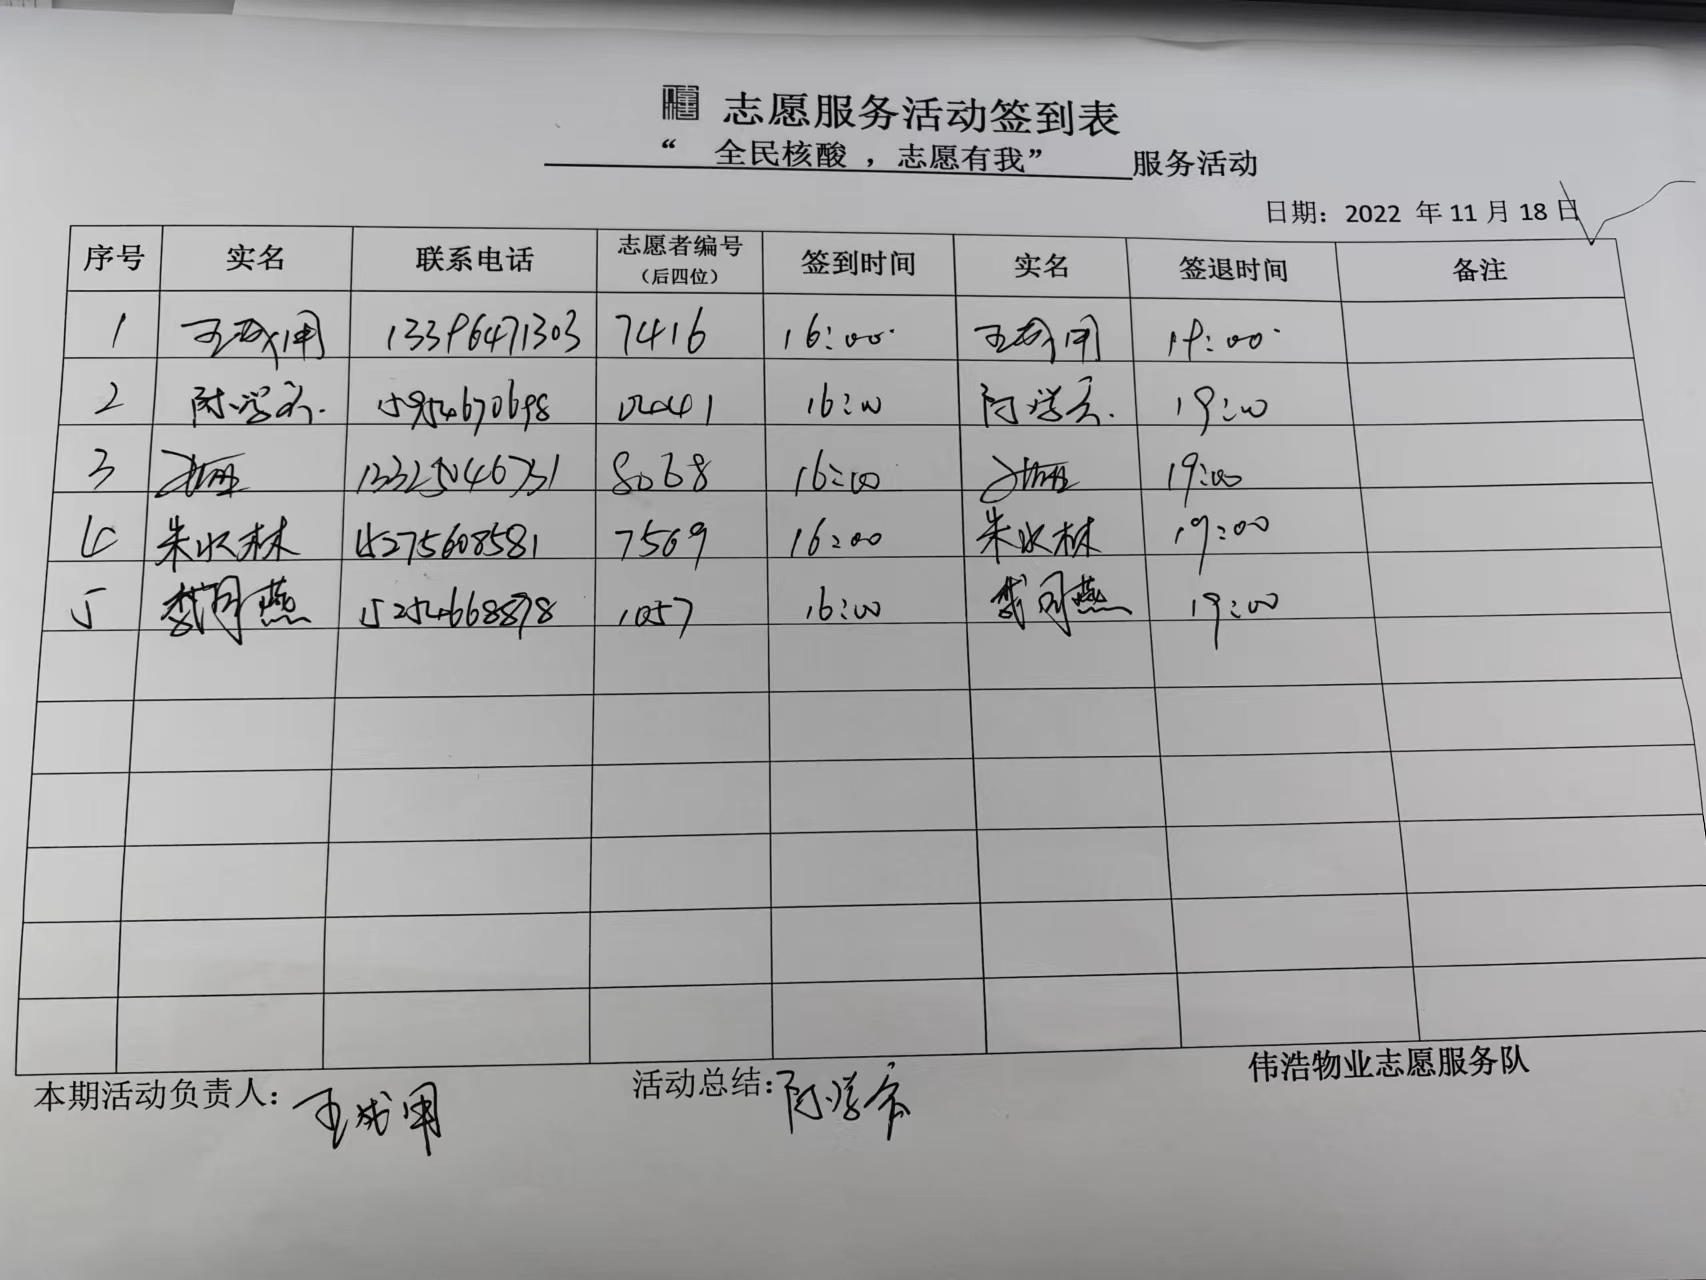 志愿服务活动签到表
“ 全民核酸 ，志愿有我” 服务活动
日期：2022 年 11 月 18 日
序号 实名 联系电话 志愿者编号（后四位） 签到时间 实名 签退时间 备注
1 王成用 13396471303 7416 16:00 王成用 19:00
2 15954670698 16:00 19:00
3 13325046731 8068 16:00 19:00
4 朱水林 15275608581 7569 16:00 朱水林 19:00
5 燕 15254668898 1057 16:00 燕 19:00
本期活动负责人： 王成用 活动总结： 伟浩物业志愿服务队